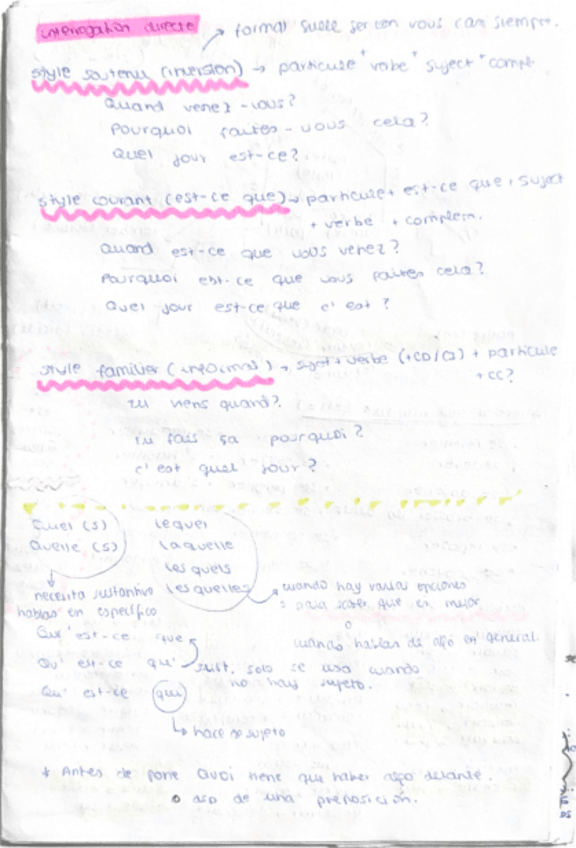 interrogation directe
→ formal suele ser con vous casi siempre.
style soutenu (inversion) → particule + verbe + suject + compl.
Quand venez-vous?
Pourquoi faites-vous cela?
Quel jour est-ce?
style courant (est-ce que) → particule + est-ce que + suject
+ verbe + complem.
Quand est-ce que vous venez?
Pourquoi est-ce que vous faites cela?
Quel jour est-ce que c'est?
style familier (informal) → sujet + verbe (+CD/CI) + particule
+ CC?
Tu viens quand?
Tu fais ça pourquoi?
c'est quel jour?
Quel (s) lequel
Quelle (s) laquelle
les quels
lesquelles
necesita sustantivo
hablas en específico
cuando hay varias opciones
para saber que es mejor
o
cuando hablas de algo en general.
Qu'est-ce que
Qu'est-ce qu' sust. solo se usa cuando
no hay sujeto.
Qu'est-ce qui
↳ hace de sujeto
* Antes de poner Quoi tiene que haber algo delante.
o algo de una preposición.